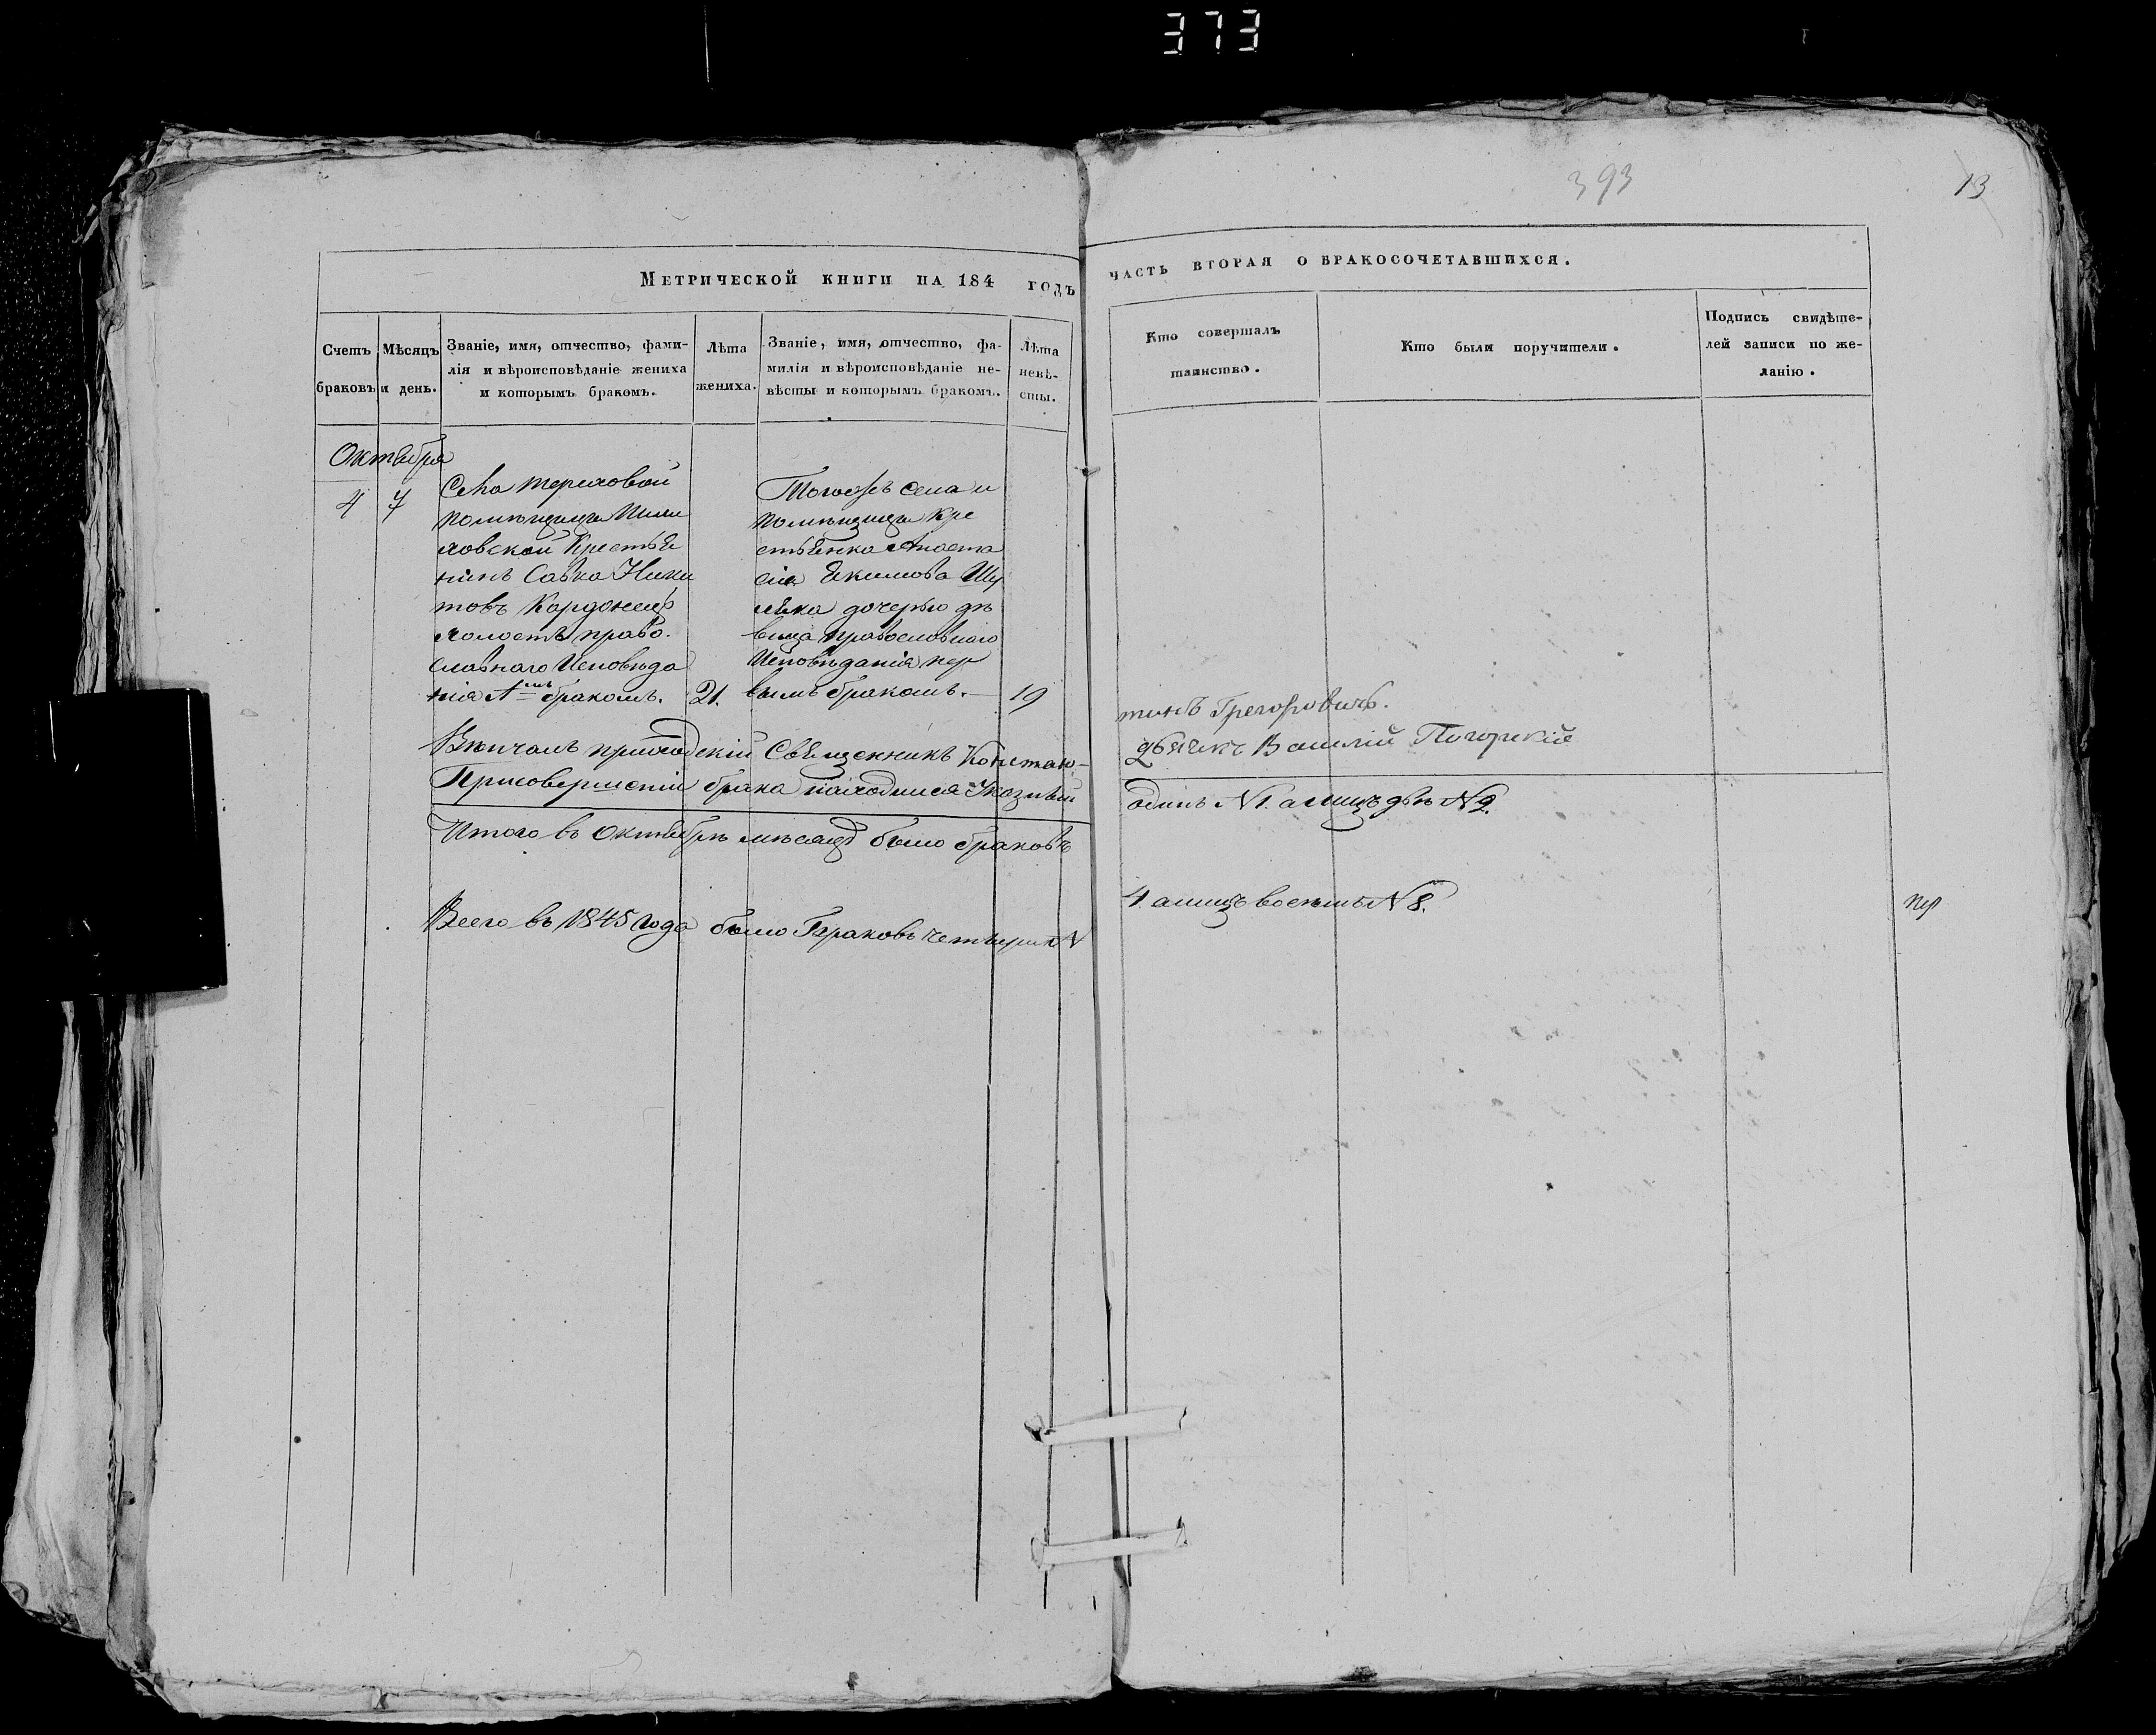 373
393
13
Метрической книги на 184 годъ
часть вторая о бракосочетавшихся.
Счетъ браковъ
Мѣсяцъ и день.
Званіе, имя, отчество, фами-
лія и вѣроисповѣданіе жениха
и которымъ бракомъ.
Лѣта
жениха.
Званіе, имя, отчество, фа-
милія и вѣроисповѣданіе не-
вѣсты и которымъ бракомъ.
Лѣта
невѣ-
сты.
Кто совершалъ
таинство.
Кто были поручители.
Подпись свидѣте-
лей записи по же-
ланію.
Октября
4 7
Села Тереховой
помѣщицы
ловской Крестья
нинъ Савка Ники
товъ Кордонецъ
холостъ право.
славнаго Исповѣда
нія 1мъ бракомъ. 21.
Тогожъ села и
помѣщицы кре
стьянка Анаста
сія Якимова Шу
ляка дочерью дѣ
вица православнаго
Исповѣданія пер
вымъ бракомъ. 19
Вѣнчалъ приходскій Священникъ Констан-
тинъ Грегоровичъ.
Присовершеніи брака находился Указный
дьячекъ Василій Погорскій
Итого въ Октябрѣ мѣсяцѣ было браковъ
одинъ N 1. а лицъ двѣ N 2.
Всего въ 1845 года было Браковъ четыри N
4. а лицъ восемь N 8.